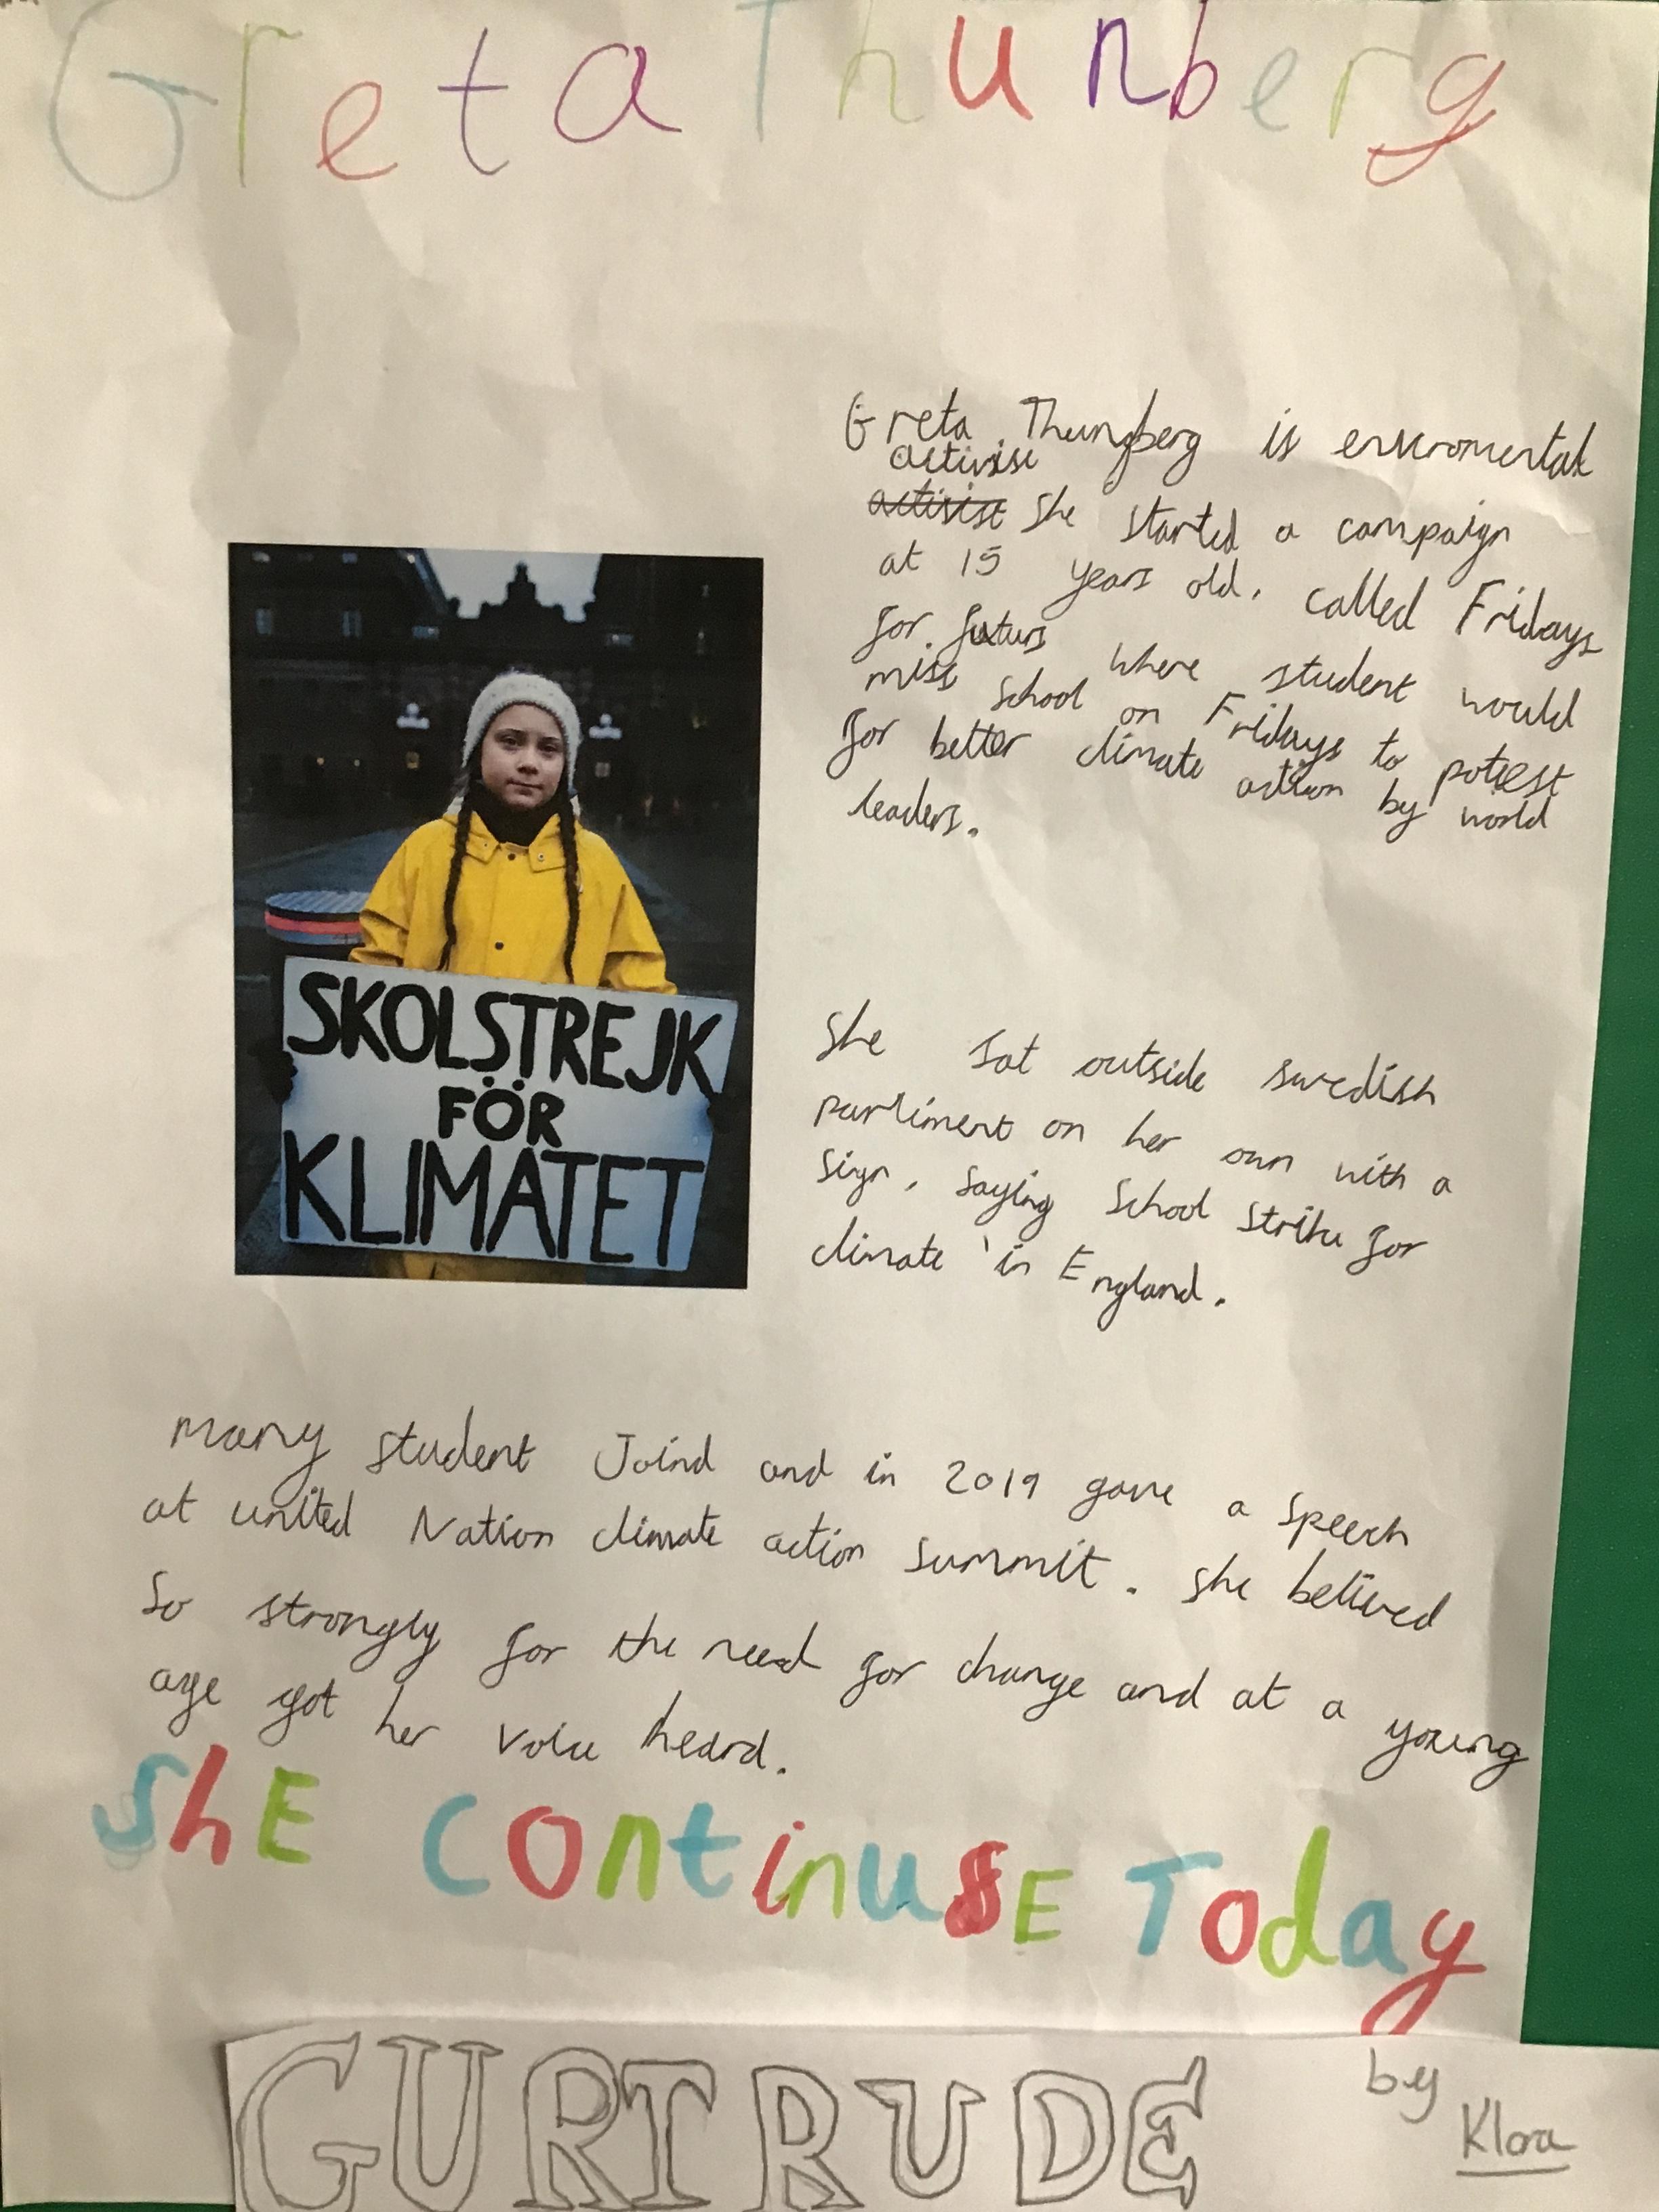 Greta Thunberg
Greta Thungberg is enviromental
activist
activist she started a campaign
at 15 years old, called Fridays
for future where student would
miss school on Fridays to potest
for better climate action by world
leaders.
SKOLSTREJK
FÖR
KLIMATET
She sat outside swedish
parliment on her own with a
sign, saying School strike for
climate 'in England.
many student Joind and in 2019 gave a speech
at united Nation climate action summit. she belived
so strongly for the need for change and at a young
age got her voice heard.
ShE continuSE Today
GURTRUDE
by
Klora